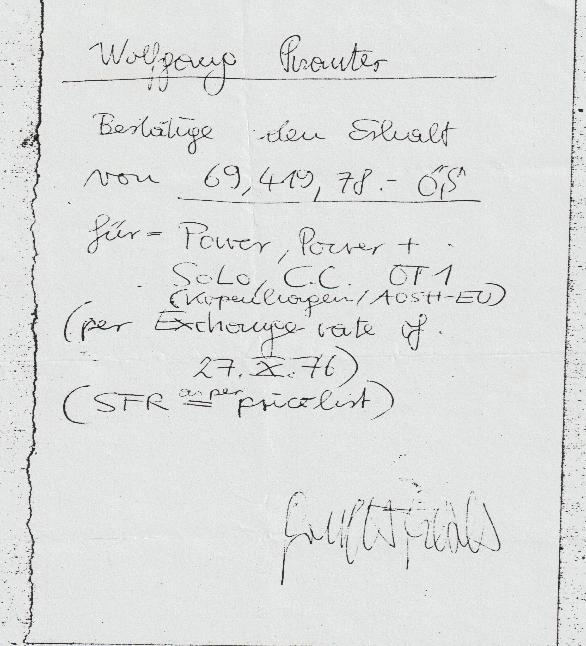 Wolfgang Krauter
Bestätige den Erhalt
von 69,419,78.- ÖS
für = Power, Power +
SOLO, C.C. OT 1
(Kopenhagen/AOSH-EU)
(per Exchange rate of
27.X.76)
(SFR as per pricelist)